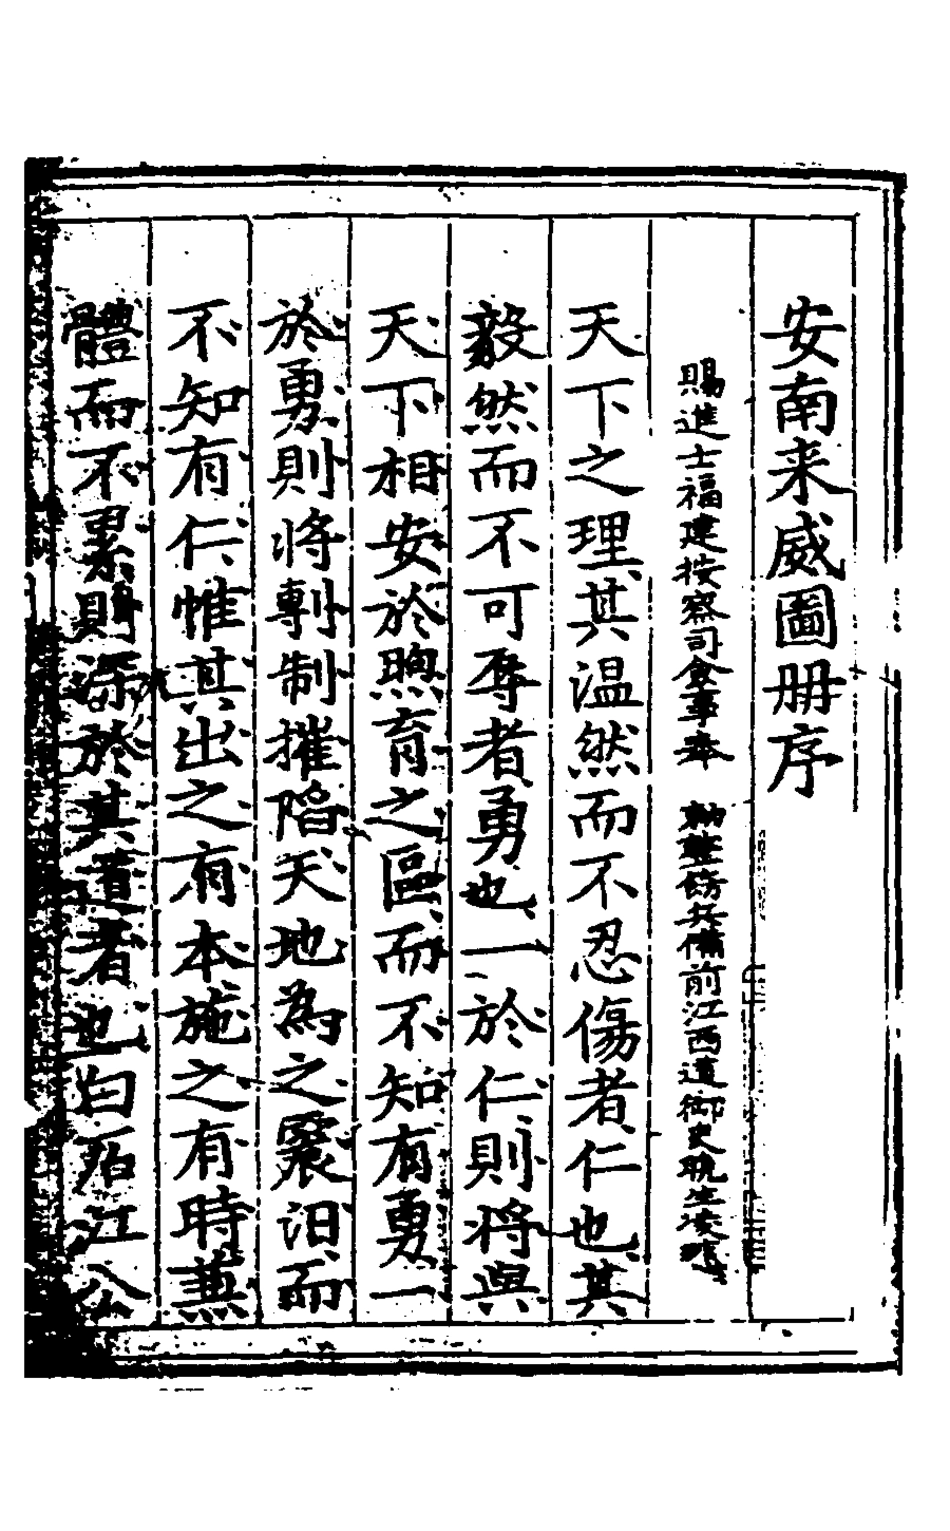 安南来威圖册序
賜進士福建按察司僉事奉 勑整飭兵備前江西道御史晚生凌
天下之理其温然而不忍傷者仁也其
毅然而不可辱者勇也一於仁則將與
天下相安於煦育之區而不知有勇一
於勇則將剸制摧陷天地為之震汩而
不知有仁惟其出之有本施之有時兼
體而不累則深於其道者也白石江公